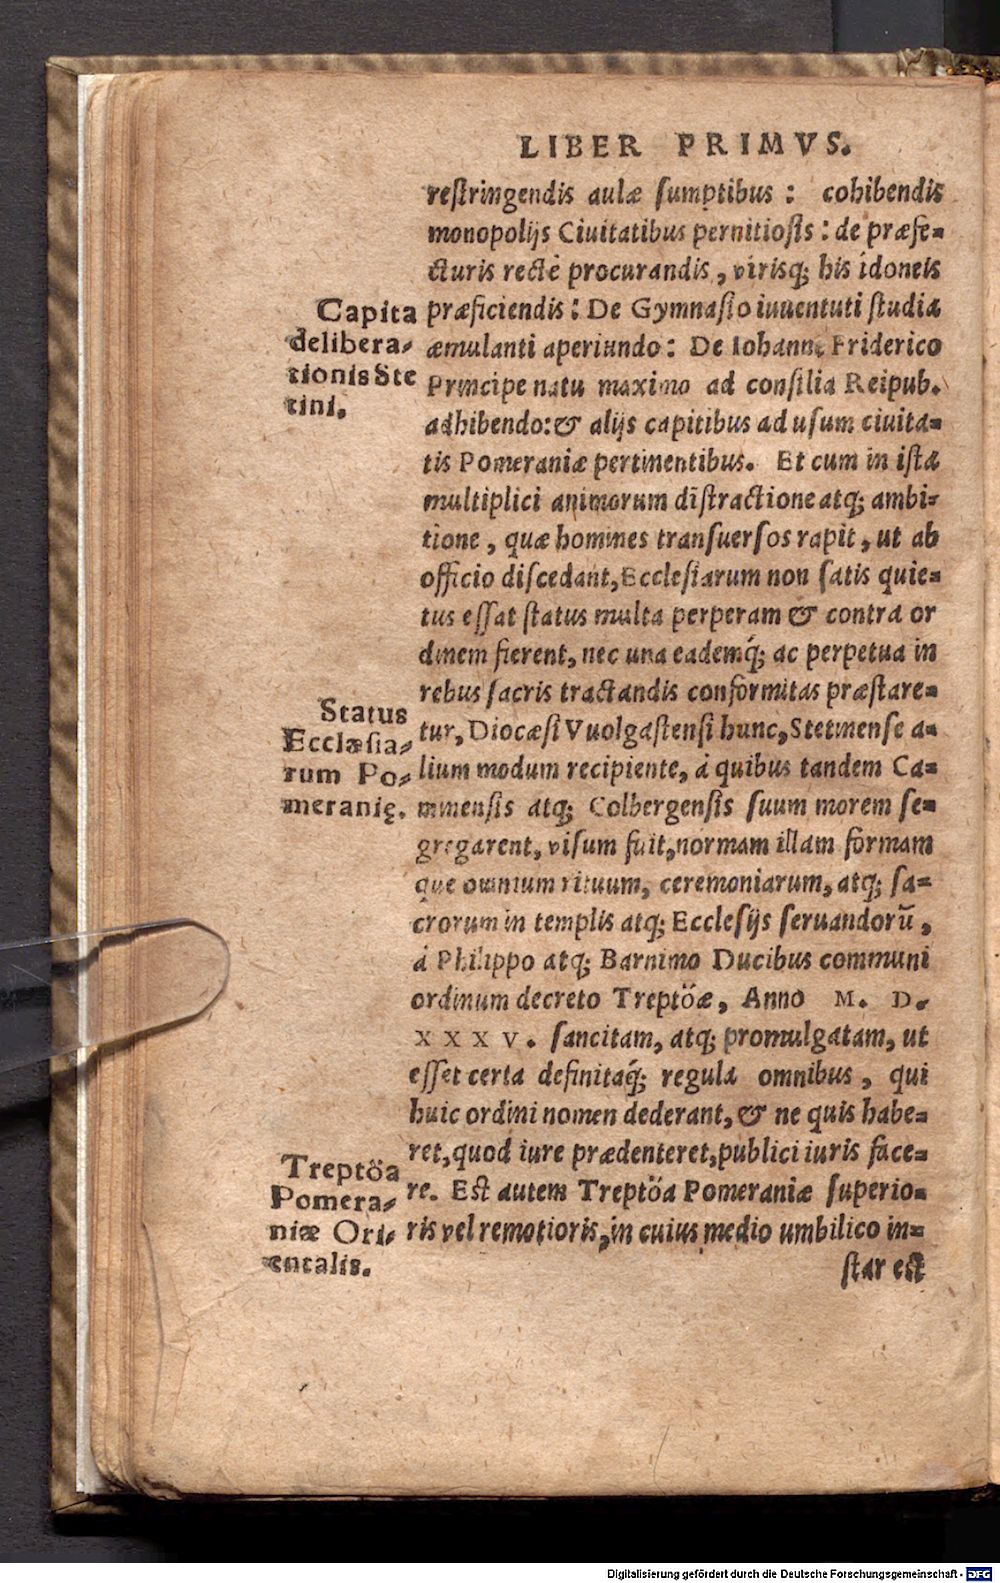 LIBER PRIMVS.
restringendis aulæ sumptibus : cohibendis
monopolijs Ciuitatibus pernitiosis : de præfe-
cturis rectè procurandis, virisq; his idoneis
præficiendis : De Gymnasio iuuentuti studia
æmulanti aperiundo : De Iohanne Friderico
Principe natu maximo ad consilia Reipub.
adhibendo: & alijs capitibus ad usum ciuita-
tis Pomeraniæ pertinentibus. Et cum in ista
multiplici animorum distractione atq; ambi-
tione, quæ homines transuersos rapit, ut ab
officio discedant, Ecclesiarum non satis quie-
tus essat status multa perperam & contra or
dinem fierent, nec una eademq́; ac perpetua in
rebus sacris tractandis conformitas præstare-
tur, Diocæsi Vuolgastensi hunc, Stetinense a-
lium modum recipiente, à quibus tandem Ca-
minensis atq; Colbergensis suum morem se-
gregarent, visum fuit, normam illam formam
que omnium rituum, ceremoniarum, atq; sa-
crorum in templis atq; Ecclesijs seruandorū,
à Philippo atq; Barnimo Ducibus communi
ordinum decreto Treptöæ, Anno M. D.
XXXV. sancitam, atq; promulgatam, ut
esset certa definitaq́; regula omnibus, qui
huic ordini nomen dederant, & ne quis habe-
ret, quod iure prædenteret, publici iuris face-
re. Est autem Treptöa Pomeraniæ superio-
ris vel remotioris, in cuius medio umbilico in-
star est
Capita
delibera-
tionis Ste
tini.
Status
Ecclæsia-
rum Po-
meranię.
Treptöa
Pomera-
niæ Ori-
entalis.
Digitalisierung gefördert durch die Deutsche Forschungsgemeinschaft - DFG